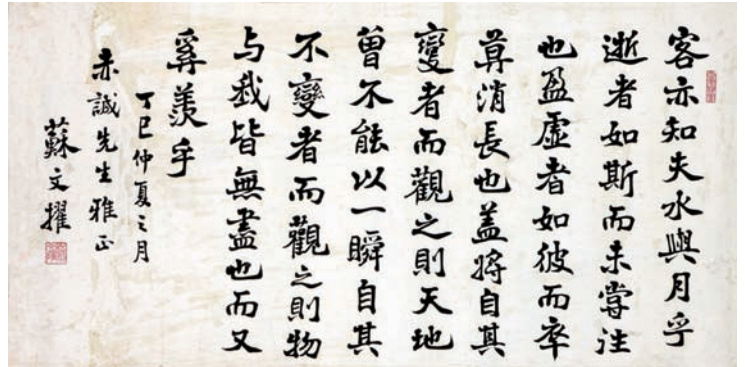 客亦知夫水與月乎
逝者如斯而未嘗往
也盈虛者如彼而卒
莫消長也盖將自其
變者而觀之則天地
曾不能以一瞬自其
不變者而觀之則物
与我皆無盡也而又
奚羨乎
丁巳仲夏之月
赤誠先生雅正
蘇文擢